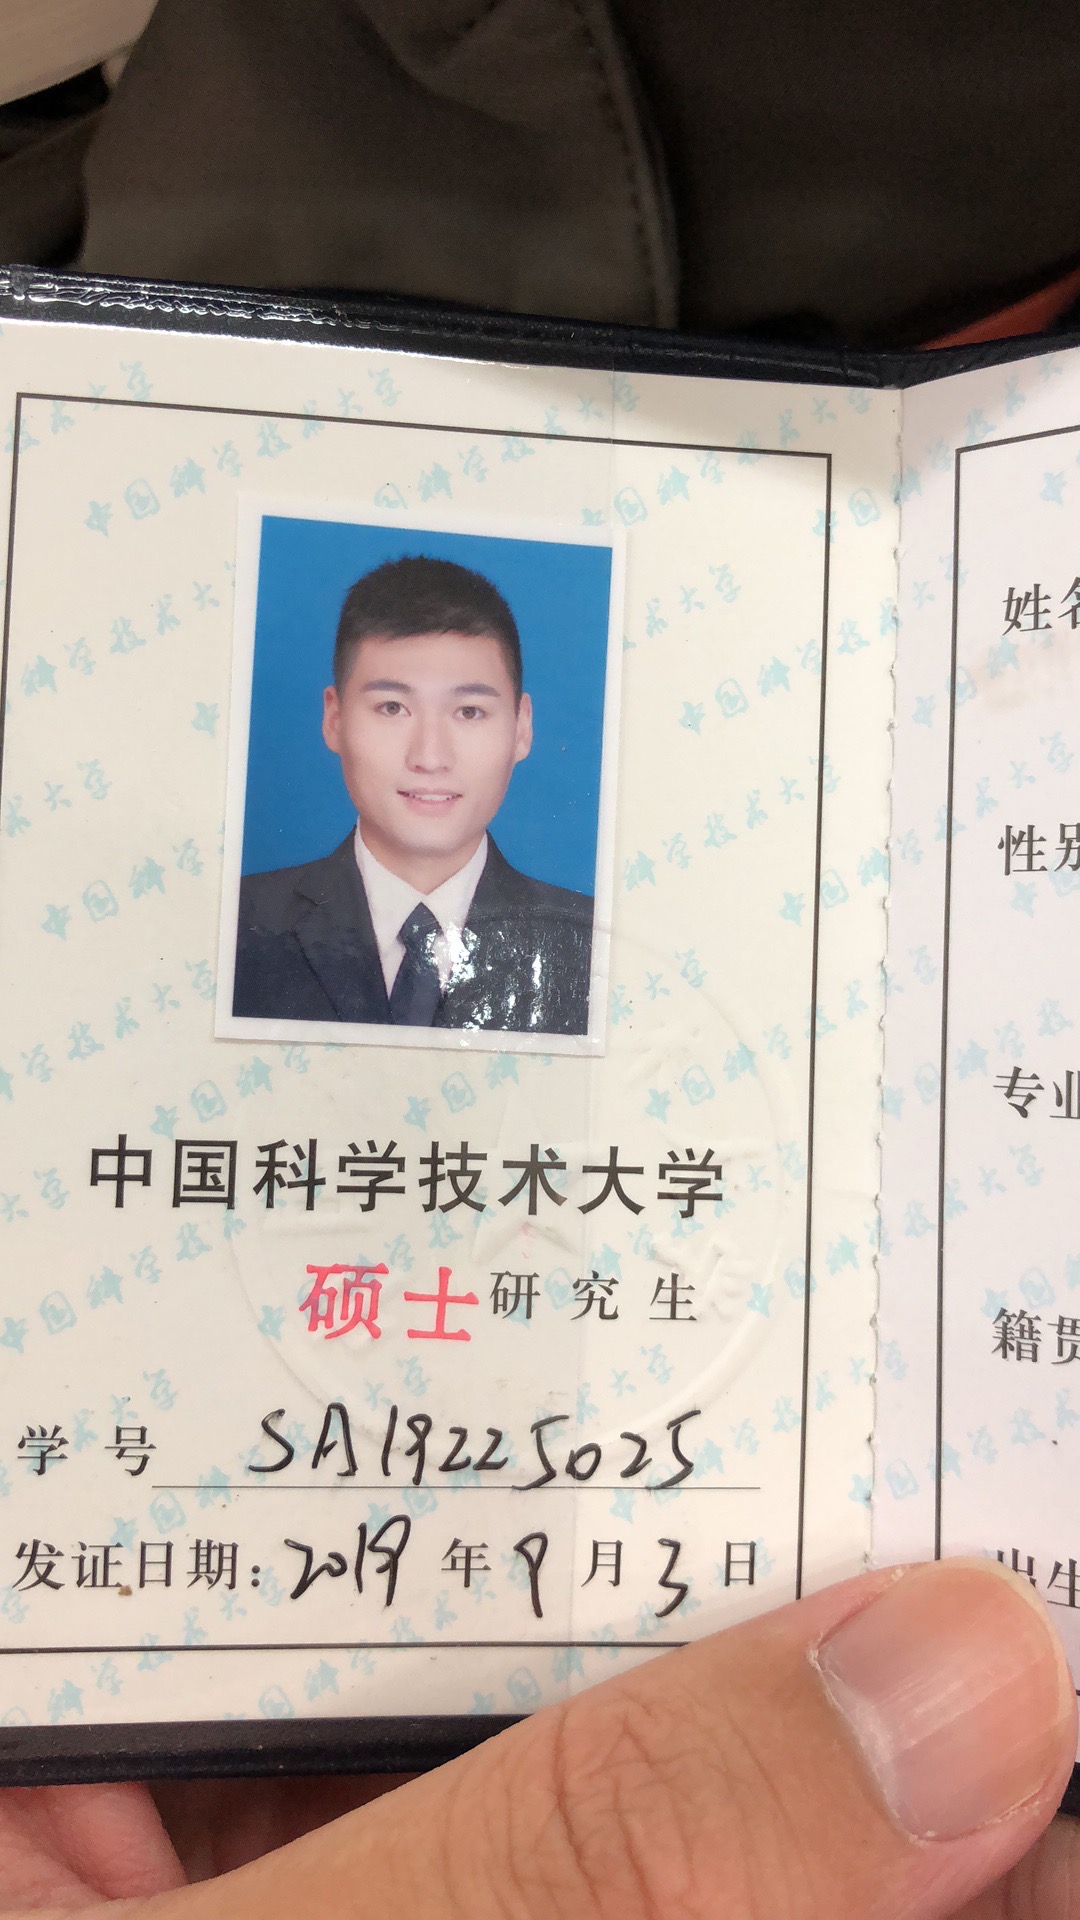 中国科学技术大学
硕士研究生
学号 SA19225025
发证日期: 2019年9月3日
姓名
性别
专业
籍贯
出生